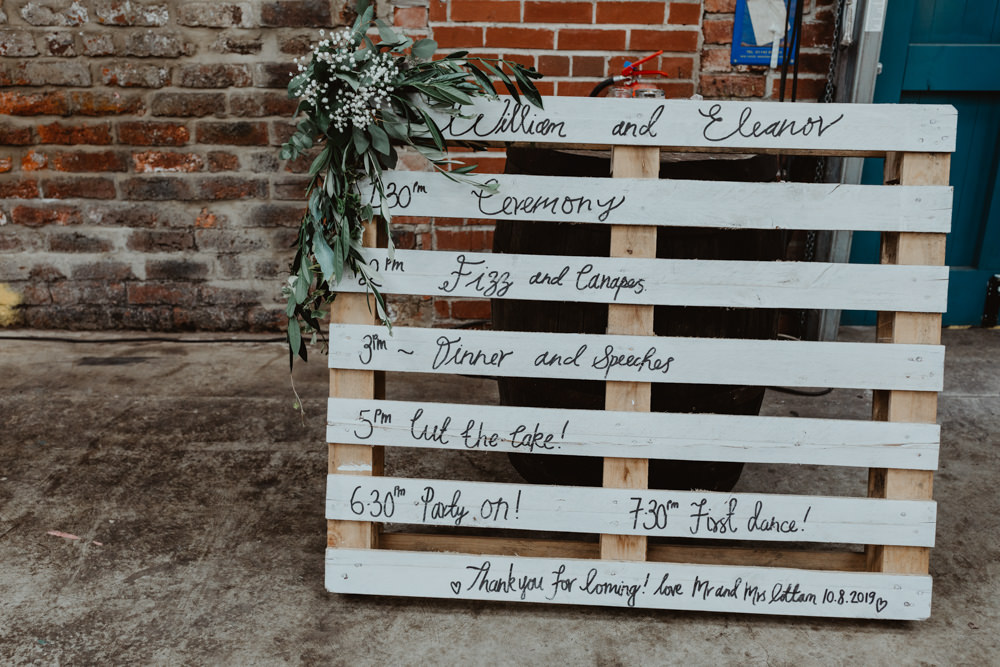 William and Eleanor
1.30pm Ceremony
2pm Fizz and Canapes.
3pm ~ Dinner and Speeches
5pm Cut the Cake!
6.30pm Party on! 7.30pm First dance!
♡ Thank you for coming! love Mr and Mrs Cottam 10.8.2019 ♡